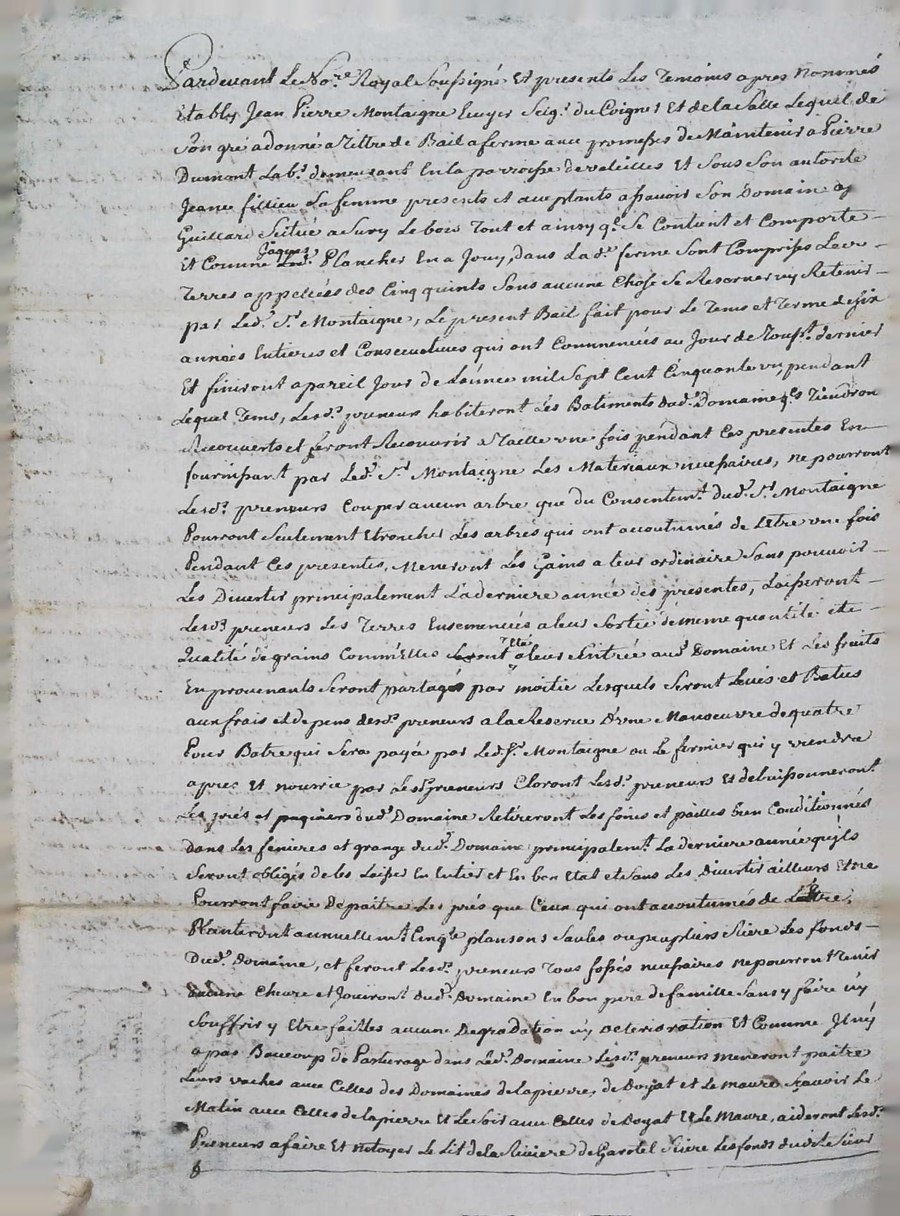 Pardevant Le No.re Royal Soussigné Et presents Les Temoins apres Nommés
Etably Jean Pierre Montaigne Ecuyer Seig.r du Poignet Et de la Salle Lequel de
Son gre a donné a Tittre de Bail a ferme avec promesses de Maintenir a Pierre
Dumont Lab.r demeurant En la parroisse de valeilles Et Sous Son autorite
Jeanne fillieu Sa femme presents et acceptants assavoir Son Domaine
Guillard Scitué a Sury Le bois Tout et ainsy q.l Se Contient et Comporte
Et Comme Jaques Plancher En a Jouy, dans Lad.e ferme Sont Comprises Les
Terres appellées des Cinq quints Sans aucune Chose Se Reserver ny Retenir
par Led.t S.r Montaigne, Le present Bail fait pour Le Tems et Terme de Six
années Entieres et Consecutives qui ont Commencées au Jour de Touss.t dernier
Et finiront a pareil Jour de L'année mil Sept Cent Cinquante un, pendant
Lequel Tems, Lesd.s preneurs habiteront Les Batiments dud.t Domaine q.ls Tiendron
Recouverts et feront Recouvrir a Taille une fois pendant Ces presentes En
fournissant par Led.t S.r Montaigne Les Materiaux necessaires, ne pourront
Lesd.s preneurs Couper aucun arbre que du Consentem.t dud.t S.r Montaigne
Pourront Seulement Etroncher Les arbres qui ont accoutumés de L'etre une fois
Pendant Ces presentes, Meneront Les Gains a leur ordinaire Sans pouvoir
Les Divertir principalement La derniere année des presentes, Laisseront
Lesd.s preneurs Les Terres Ensemencées a leur Sortie de meme quantité et
Qualité de grains Comm'Elles Seront a leur Entrée aud.t Domaine Et Les fruits
En provenants Seront partagés par moitie Lesquels Seront Levés et Batus
aux frais et depens desd.s preneurs a la Reserve d'une Manoeuvre de quatre
Pour Batre qui Sera payé par Led.t S.r Montaigne ou Le fermier qui y viendra
apres Et nourrie par Lesd.s preneurs Cloront Lesd.s preneurs Et debuissonneront
Les prés et paquiers dud.t Domaine Retireront Les foins et pailles bien Conditionnés
dans Les fenieres et grange dud.t Domaine principalem.t La derniere année qu'ils
Seront obligés de les Laisser En Entier et En bon Etat et Sans Les divertir ailleurs Et ne
Pourront faire depaitre Les prés que Ceux qui ont accoutumés de L'etre,
Planteront annuellem.t Cinq.te plansons Saules ou peupliers Riere Les fonds
Dud.t Domaine, et feront Lesd.s preneurs Tous fossés necessaires ne pourront Tenir
aucune Chevre et Jouiront dud.t Domaine En bon pere de famille Sans y faire ny
Souffrir y Etre faittes aucune Degradation ny Deterioration Et Comme Jl n'y
a pas Beaucoup de Pasturage dans Led.t Domaine Lesd.s preneurs meneront paitre
Leurs vaches avec Celles des Domaines de la pierre, de Doyat et Le maure Scavoir Le
Matin avec Celles de la pierre Et Le Soir avec Celles de Doyat Et Le Maure, aideront Lesd.s
Preneurs a faire Et netoyer Le Lit de la Riviere de Garollel Riere Les fonds dudit Sieur